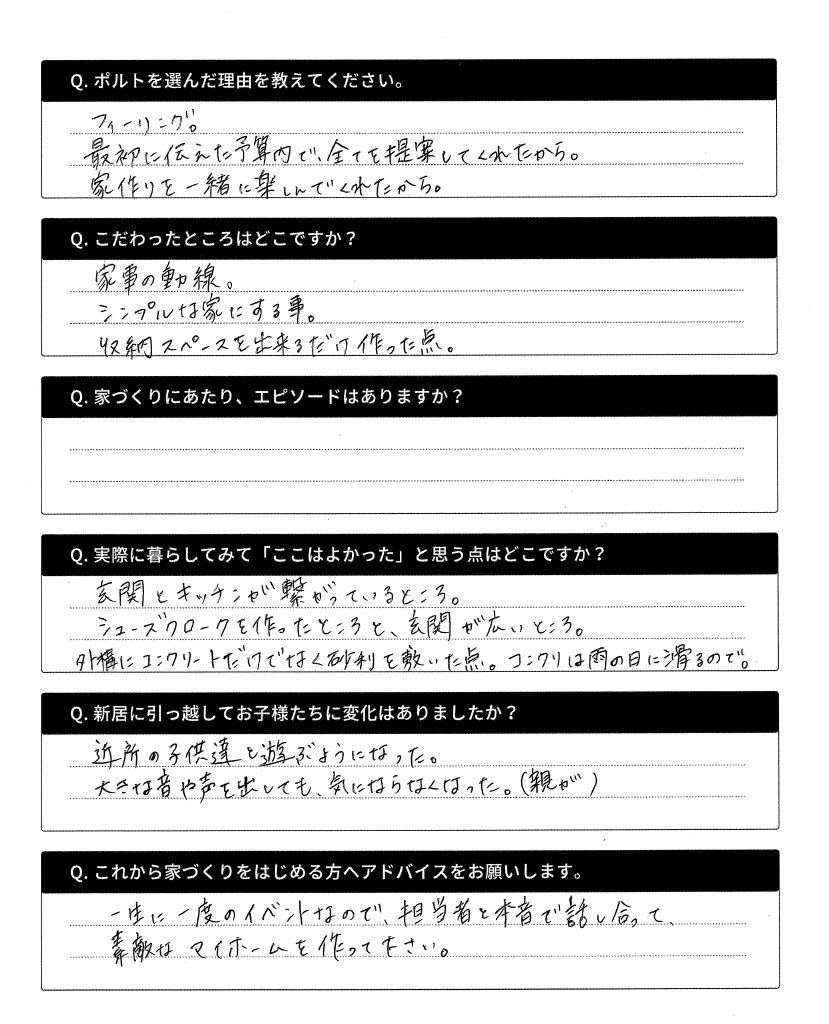 Q. ポルトを選んだ理由を教えてください。
フィーリング。
最初に伝えた予算内で、全てを提案してくれたから。
家作りを一緒に楽しんでくれたから。
Q. こだわったところはどこですか？
家事の動線。
シンプルな家にする事。
収納スペースを出来るだけ作った点。
Q. 家づくりにあたり、エピソードはありますか？
Q. 実際に暮らしてみて「ここはよかった」と思う点はどこですか？
玄関とキッチンが繋がっているところ。
シューズクロークを作ったところと、玄関が広いところ。
外構にコンクリートだけでなく砂利を敷いた点。コンクリは雨の日に滑るので。
Q. 新居に引っ越してお子様たちに変化はありましたか？
近所の子供達と遊ぶようになった。
大きな音や声を出しても、気にならなくなった。(親が)
Q. これから家づくりをはじめる方へアドバイスをお願いします。
一生に一度のイベントなので、担当者と本音で話し合って、
素敵なマイホームを作って下さい。